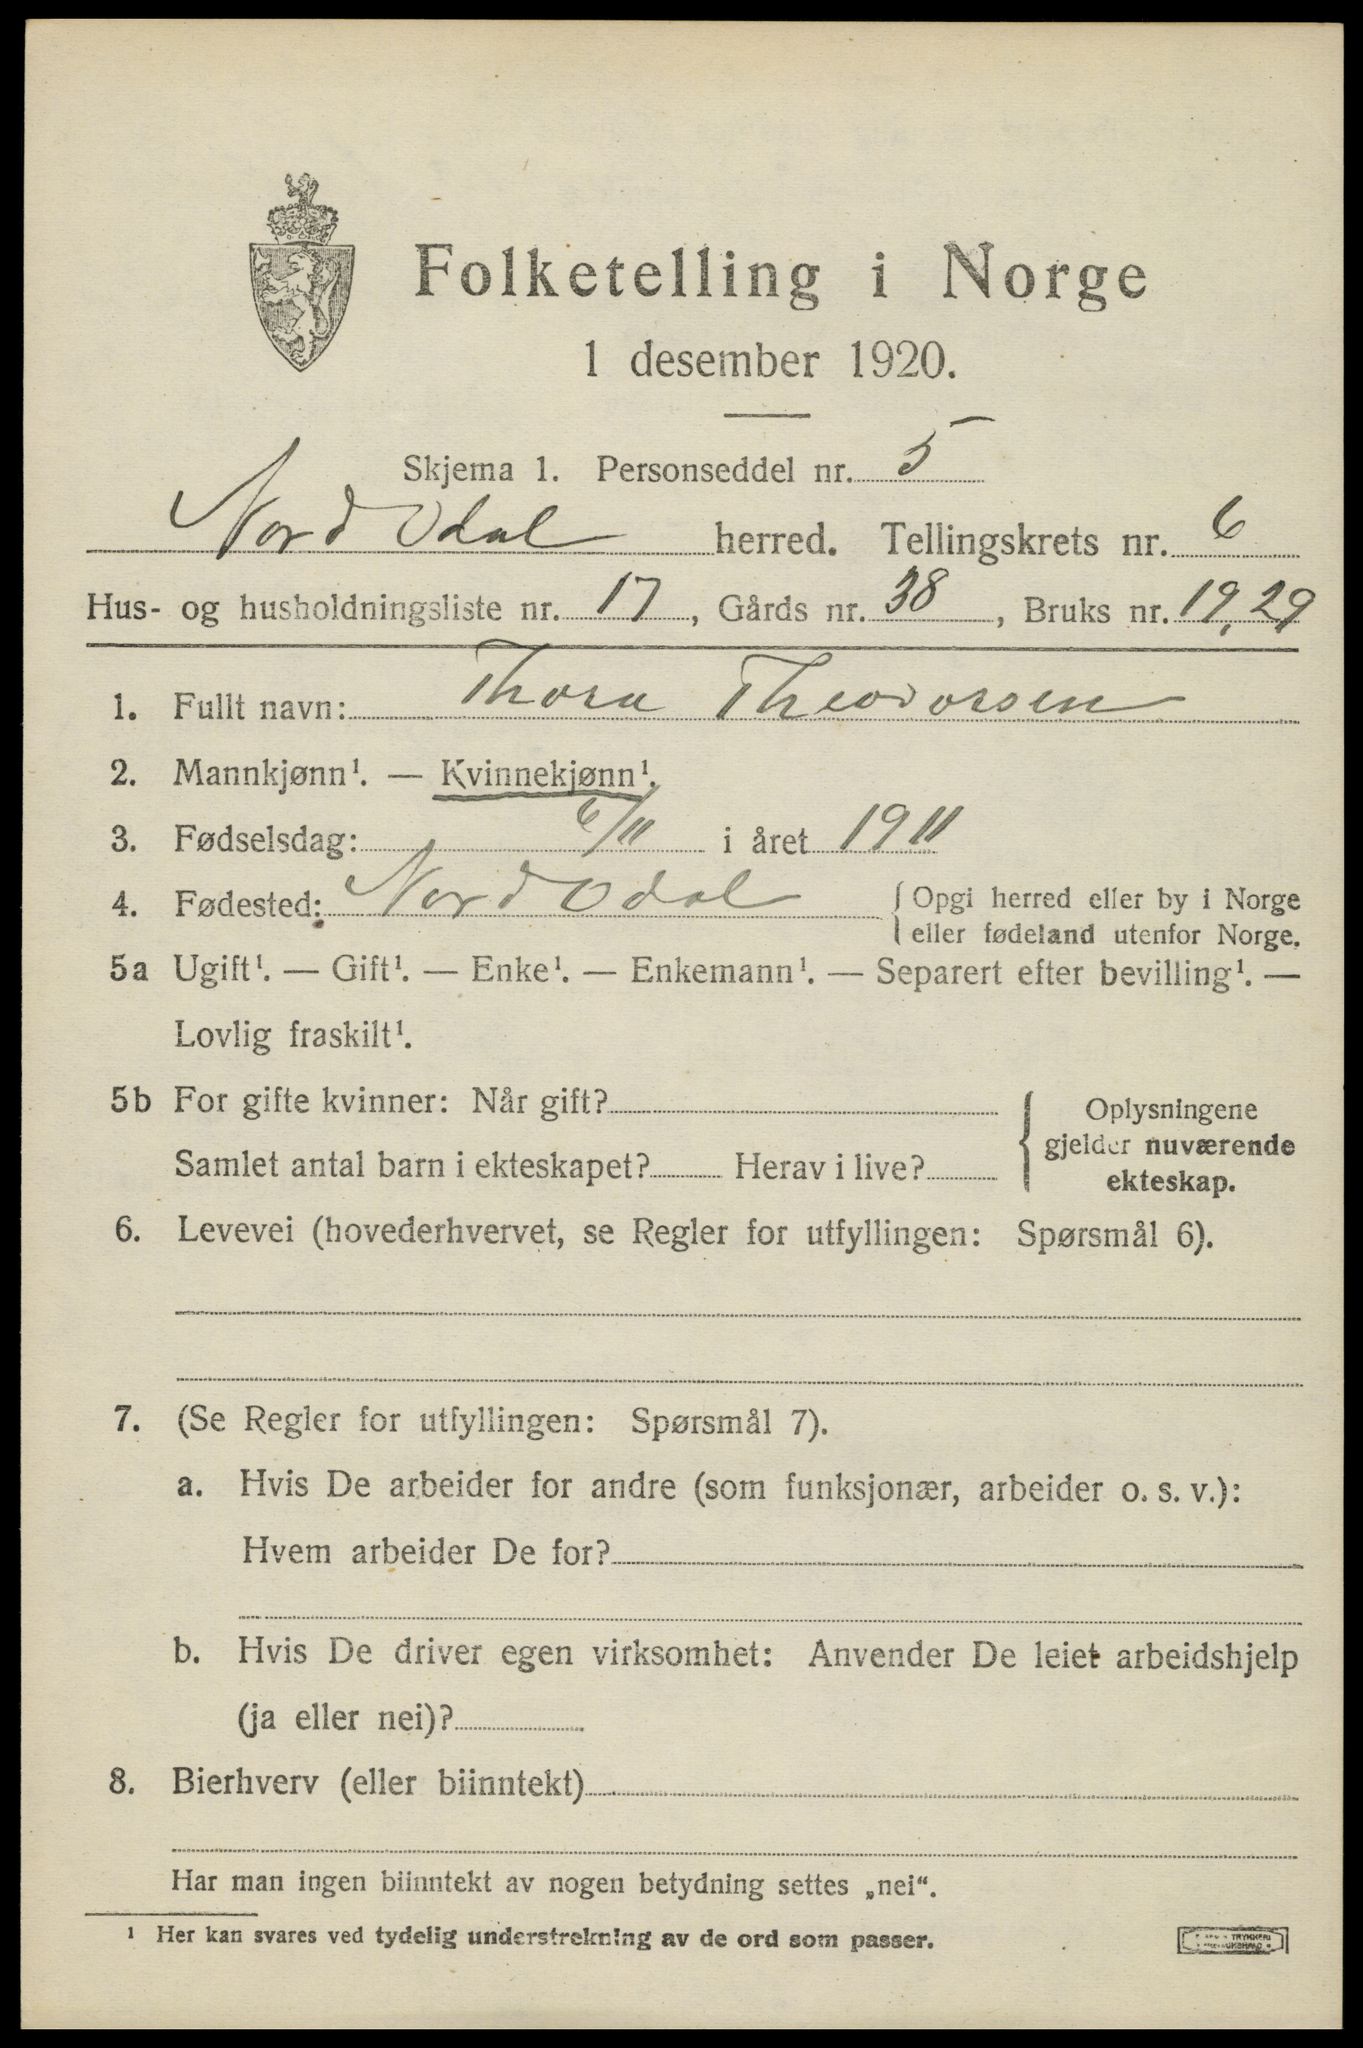 Folketelling i Norge
1 desember 1920.
Skjema 1. Personseddel nr. 5
Nord Odal herred. Tellingskrets nr. 6
Hus- og husholdningsliste nr. 17, Gårds nr. 38, Bruks nr. 19, 29
1. Fullt navn: Thora Theodorsen
2. Mannkjønn¹. — Kvinnekjønn¹.
3. Fødselsdag: 6/11 i året 1911
4. Fødested: Nord Odal { Opgi herred eller by i Norge
eller fødeland utenfor Norge.
5a Ugift¹. — Gift¹. — Enke¹. — Enkemann¹. — Separert efter bevilling¹. —
Lovlig fraskilt¹.
5b For gifte kvinner: Når gift?
Samlet antal barn i ekteskapet? Herav i live?
{ Oplysningene
gjelder nuværende
ekteskap.
6. Levevei (hovederhvervet, se Regler for utfyllingen: Spørsmål 6).
7. (Se Regler for utfyllingen: Spørsmål 7).
a. Hvis De arbeider for andre (som funksjonær, arbeider o. s. v.):
Hvem arbeider De for?
b. Hvis De driver egen virksomhet: Anvender De leiet arbeidshjelp
(ja eller nei)?
8. Bierhverv (eller biinntekt)
Har man ingen biinntekt av nogen betydning settes „nei“.
¹ Her kan svares ved tydelig understrekning av de ord som passer.